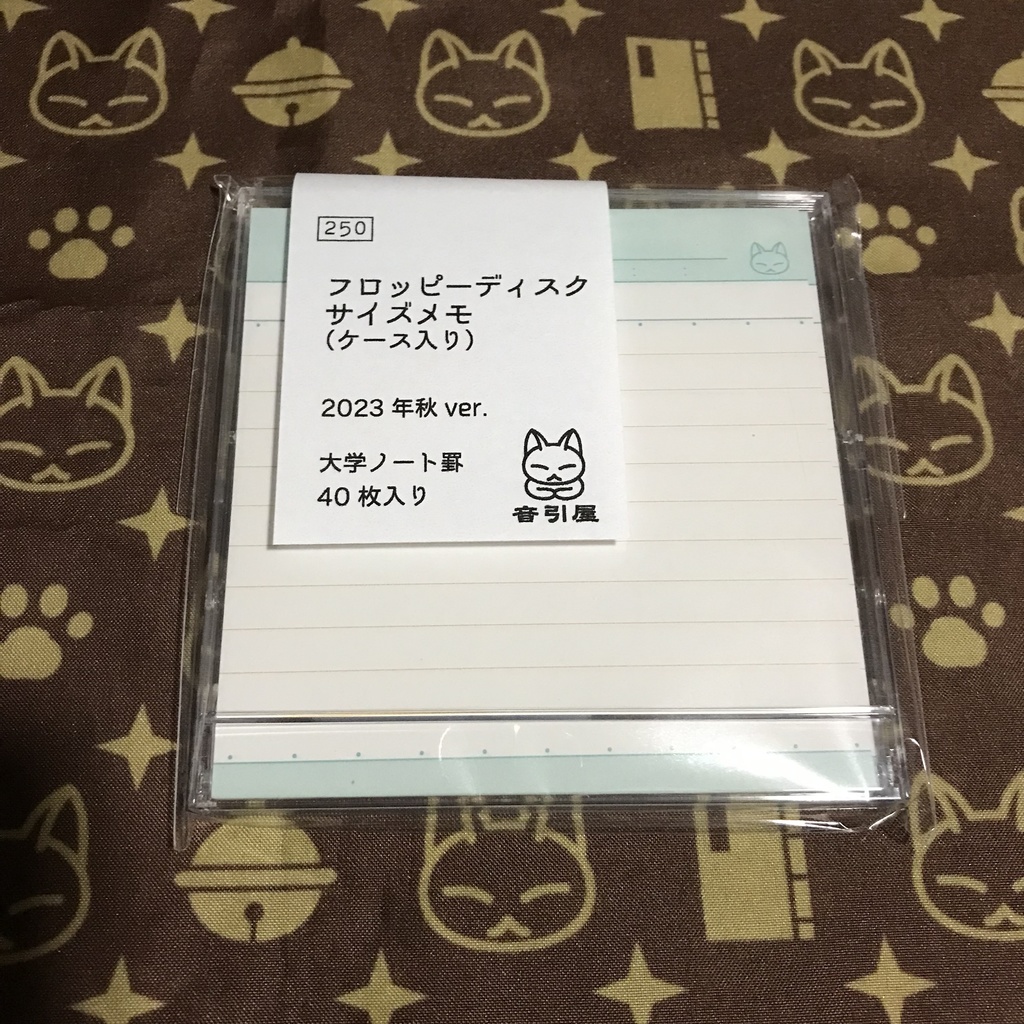 250
フロッピーディスク
サイズメモ
(ケース入り)
2023 年秋 ver.
大学ノート罫
40 枚入り
音引屋